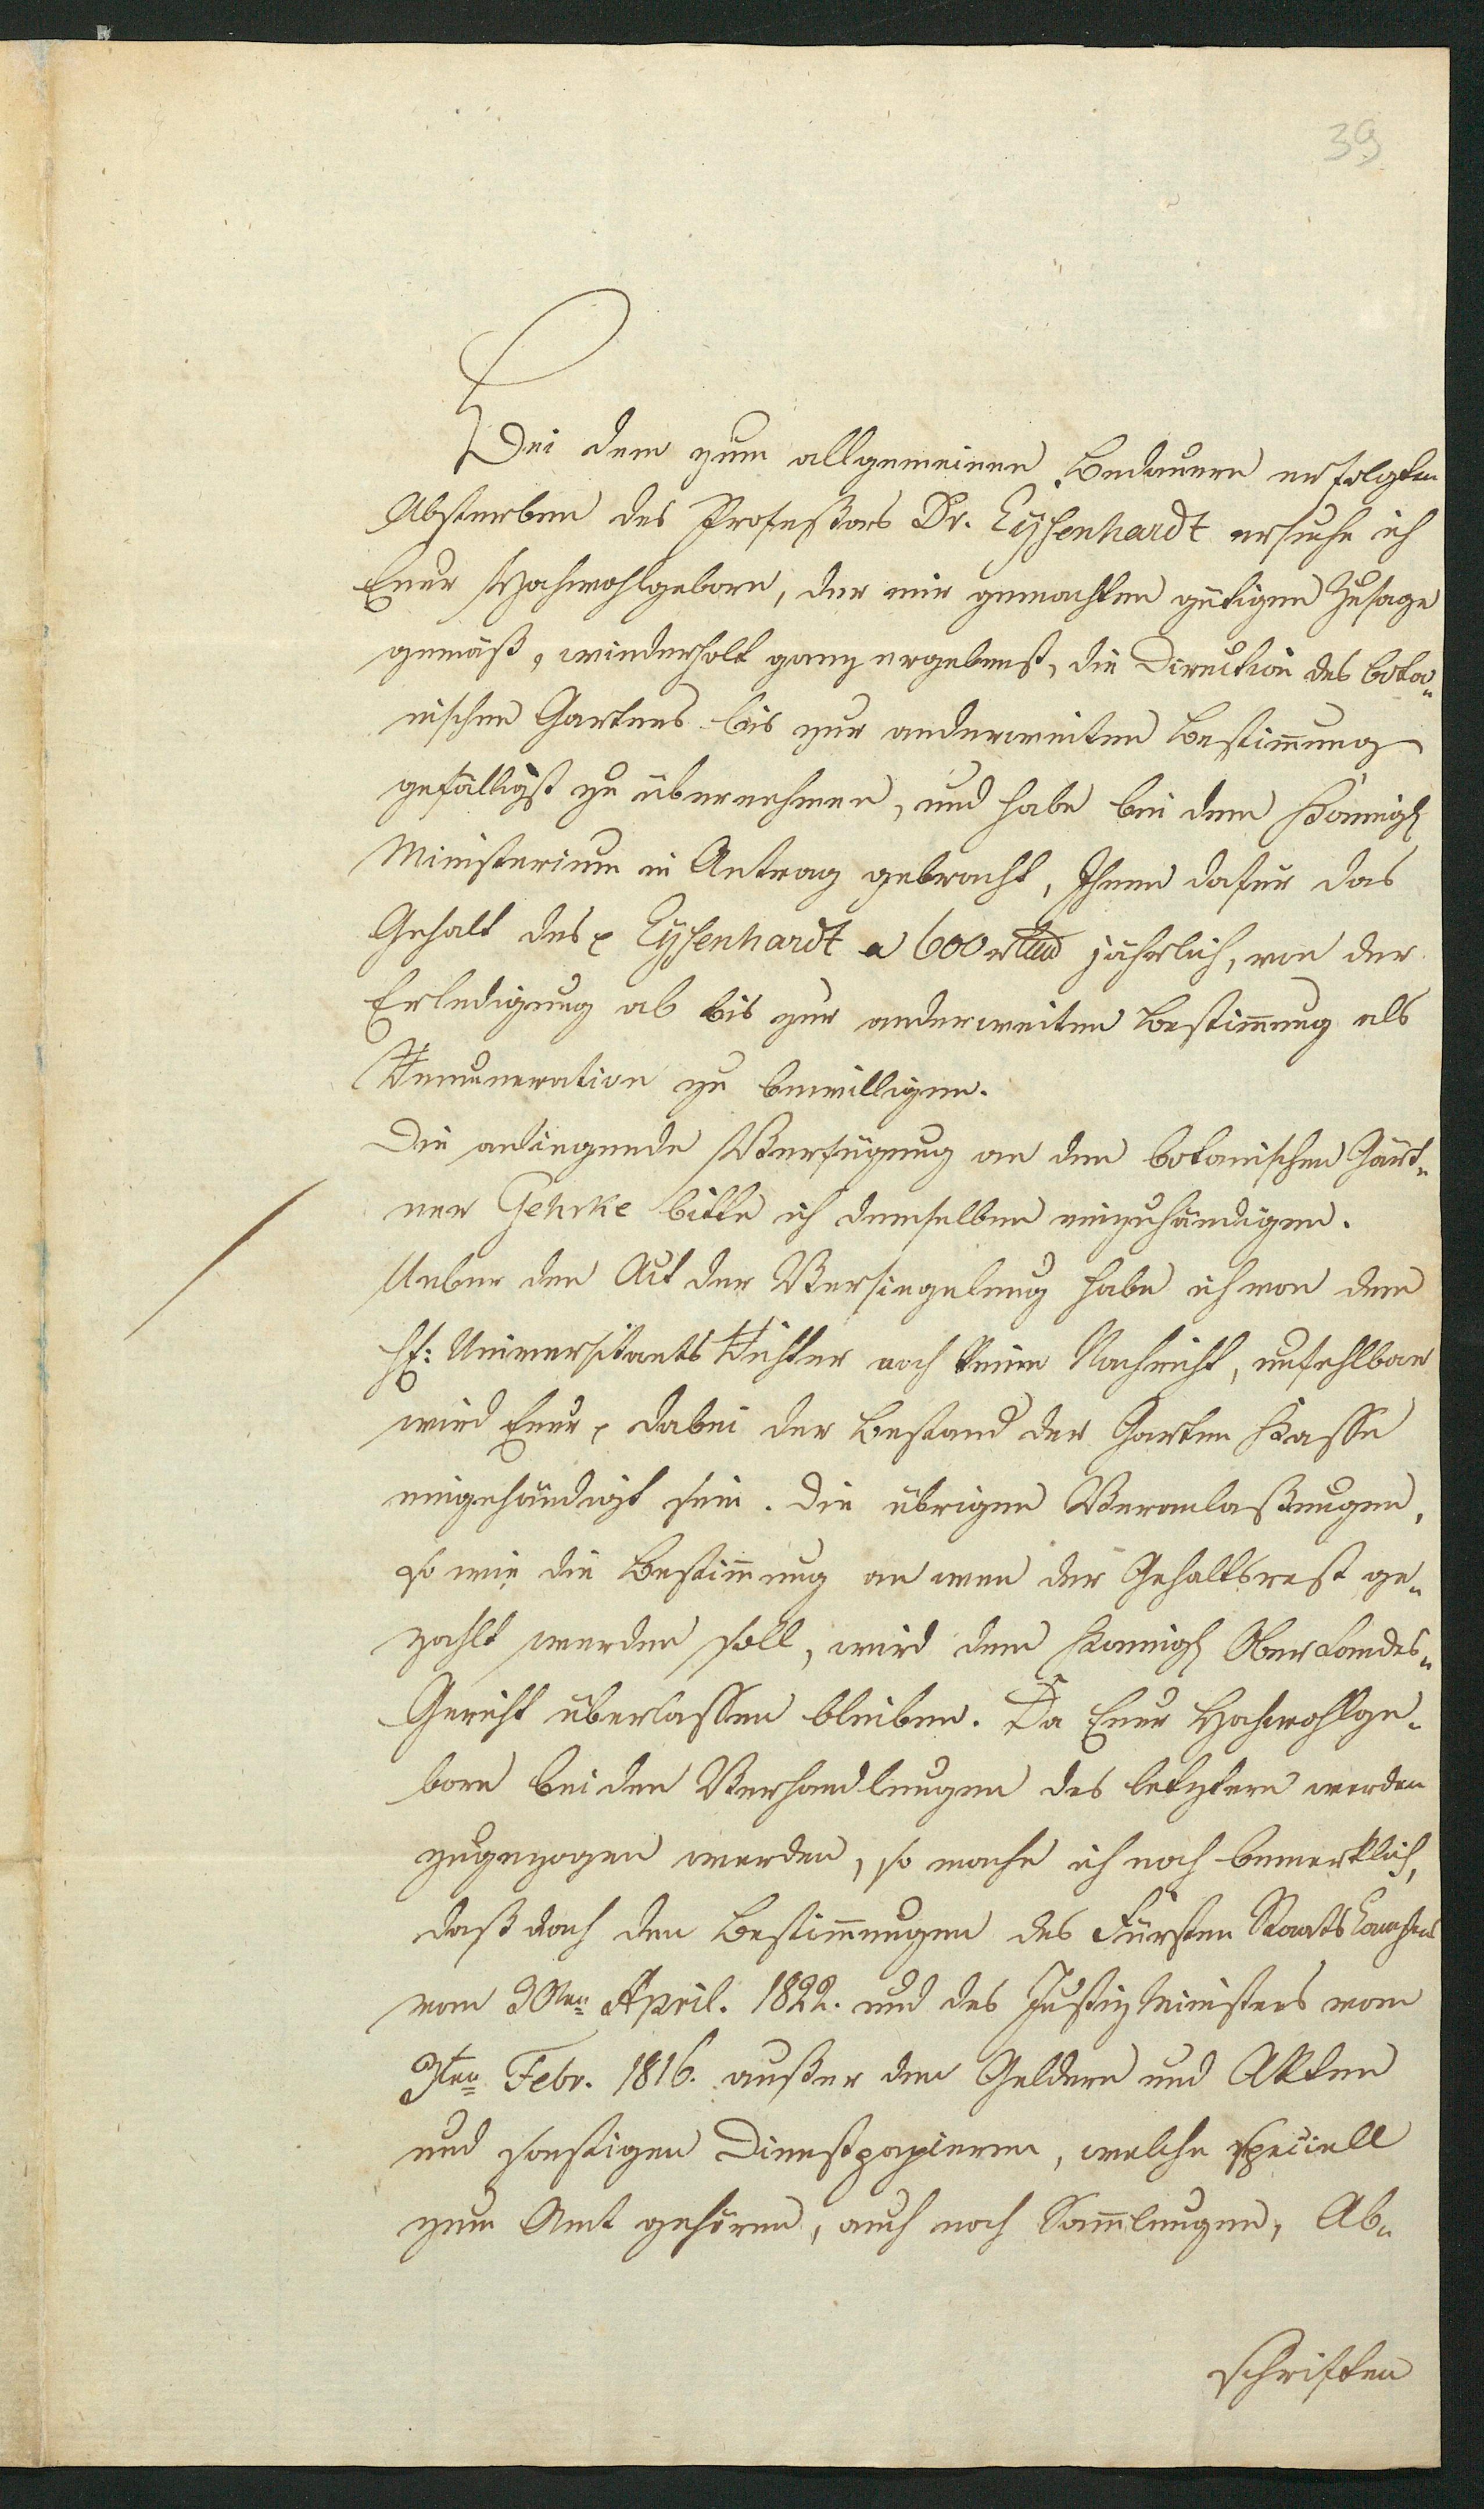 39
Bei dem zum allgemeinen Bedauern erfolgten
Absterben des Profeßors Dr. Eysenhardt ersuche ich
Euer Hochwohlgeborn, der mir gemachten gütigen Zusage
gemäß, wiederholt ganz ergebenst, die Direction des bota-
nischen Gartens bis zur anderweiten Bestim̄ung
gefälligst zu übernehmen, und habe bei dem Königl
Ministerium in Antrag gebracht, Ihnen dafür das
Gehalt des Eysenhardt a 600 jährlich, von der
Erledigung ab bis zur anderweiten Bestim̄ung als
Remuneration zu bewilligen.
Die anliegende Verfügung an den botanischen Gärt-
ner Gehrke bitte ich demselben einzuhändigen.
Ueber den Act der Versiegelung habe ich von dem
H: Universitaets Richter noch keine Nachricht, unfehlbar
wird Euer dabei der Bestand der Garten Kasse
eingehändigt sein. Die übrigen Veranlaßungen,
so wie die Bestim̄ung an wen der Gehaltsrest ge-
zahlt werden soll, wird dem Koenigl Ober Landes-
Gericht überlassen bleiben. Da Euer Hochwohlge-
born bei den Verhandlungen des letztern werden
zugezogen werden, so mache ich noch bemerklich,
daß nach den Bestim̄ungen des Fürsten Staats Kanzlers
vom 30ten April. 1822. und des Justiz Ministers vom
3ten Febr. 1816. außer den Geldern und Akten
und sonstigen Dienstpapieren, welche speciell
zum Amt gehören, auch noch Sam̄lungen, Ab-
schriften